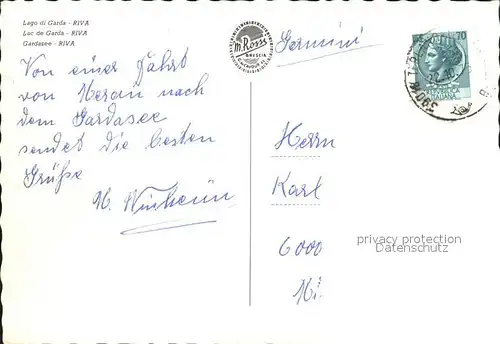 Lago di Garda - RIVA
Lac de Garda - RIVA
Gardasee - RIVA
M. Rossi
BRESCIA
Germini
70
Von einer Fahrt
von Meran nach
dem Gardasee
sendet die besten
Grüße
Herrn
Karl
6000
privacy protection
Datenschutz